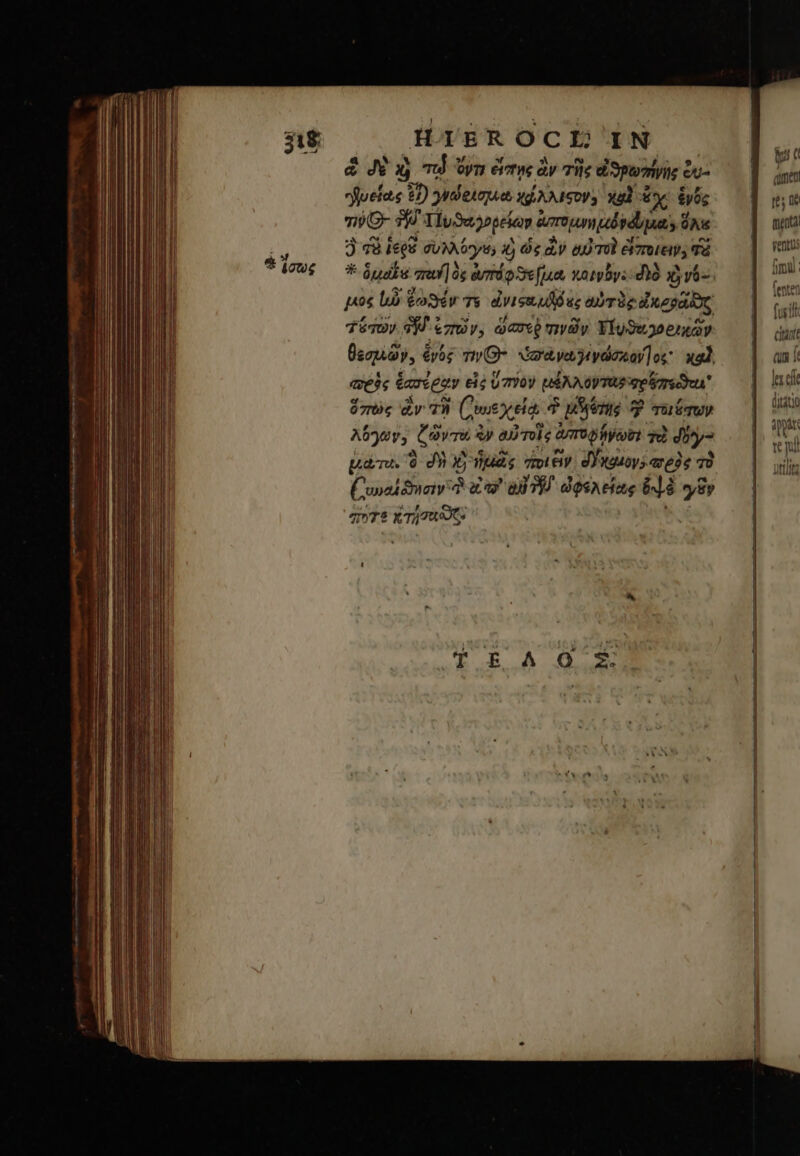 318 HIEROCL. IN
ἃ δὲ καὶ τῷ ὄντι εἴπῃς ἂν τῆς ἀνθρωπίνης εὐ-
γενείας εἶναι γνώρισμα κάλλιστον, καὶ οὐχ ἑνός
τινος τῶν Πυθαγορείων ἀπομνημόνευμα, ὅλου
δὲ τοῦ ἱεροῦ συλλόγου, καὶ ὡς ἂν αὐτοὶ εἴποιεν, τοῦ
* ἴσως
* ὁμακοῦ παντὸς ἀπόφθεγμα κοινόν. διὸ καὶ νό-
μος ἦν ἕωθέν τε ἀνισταμένους αὐτοὺς ἀκροᾶσθαι
τούτων τῶν ἐπῶν, ὥσπερ τινῶν Πυθαγορικῶν
θεσμῶν, ἑνός τινος ἐπαναγινώσκοντος· καὶ
πρὸς ἑσπέραν εἰς ὕπνον μέλλοντας τρέπεσθαι·
ὅπως ἂν τῇ συνεχείᾳ τῆς μελέτης τῶν τοιούτων
λόγων, ζῶντα ἐν αὐτοῖς ἀποφήνωσι τὰ δόγ-
ματα. ὃ δὴ καὶ ἡμᾶς ποιεῖν δίκαιον, πρὸς τὸ
συναίσθησιν τῆς ἀπ' αὐτῶν ὠφελείας ὀψὲ γοῦν
ποτε κτήσασθαι.
ΤΕΛΟΣ.